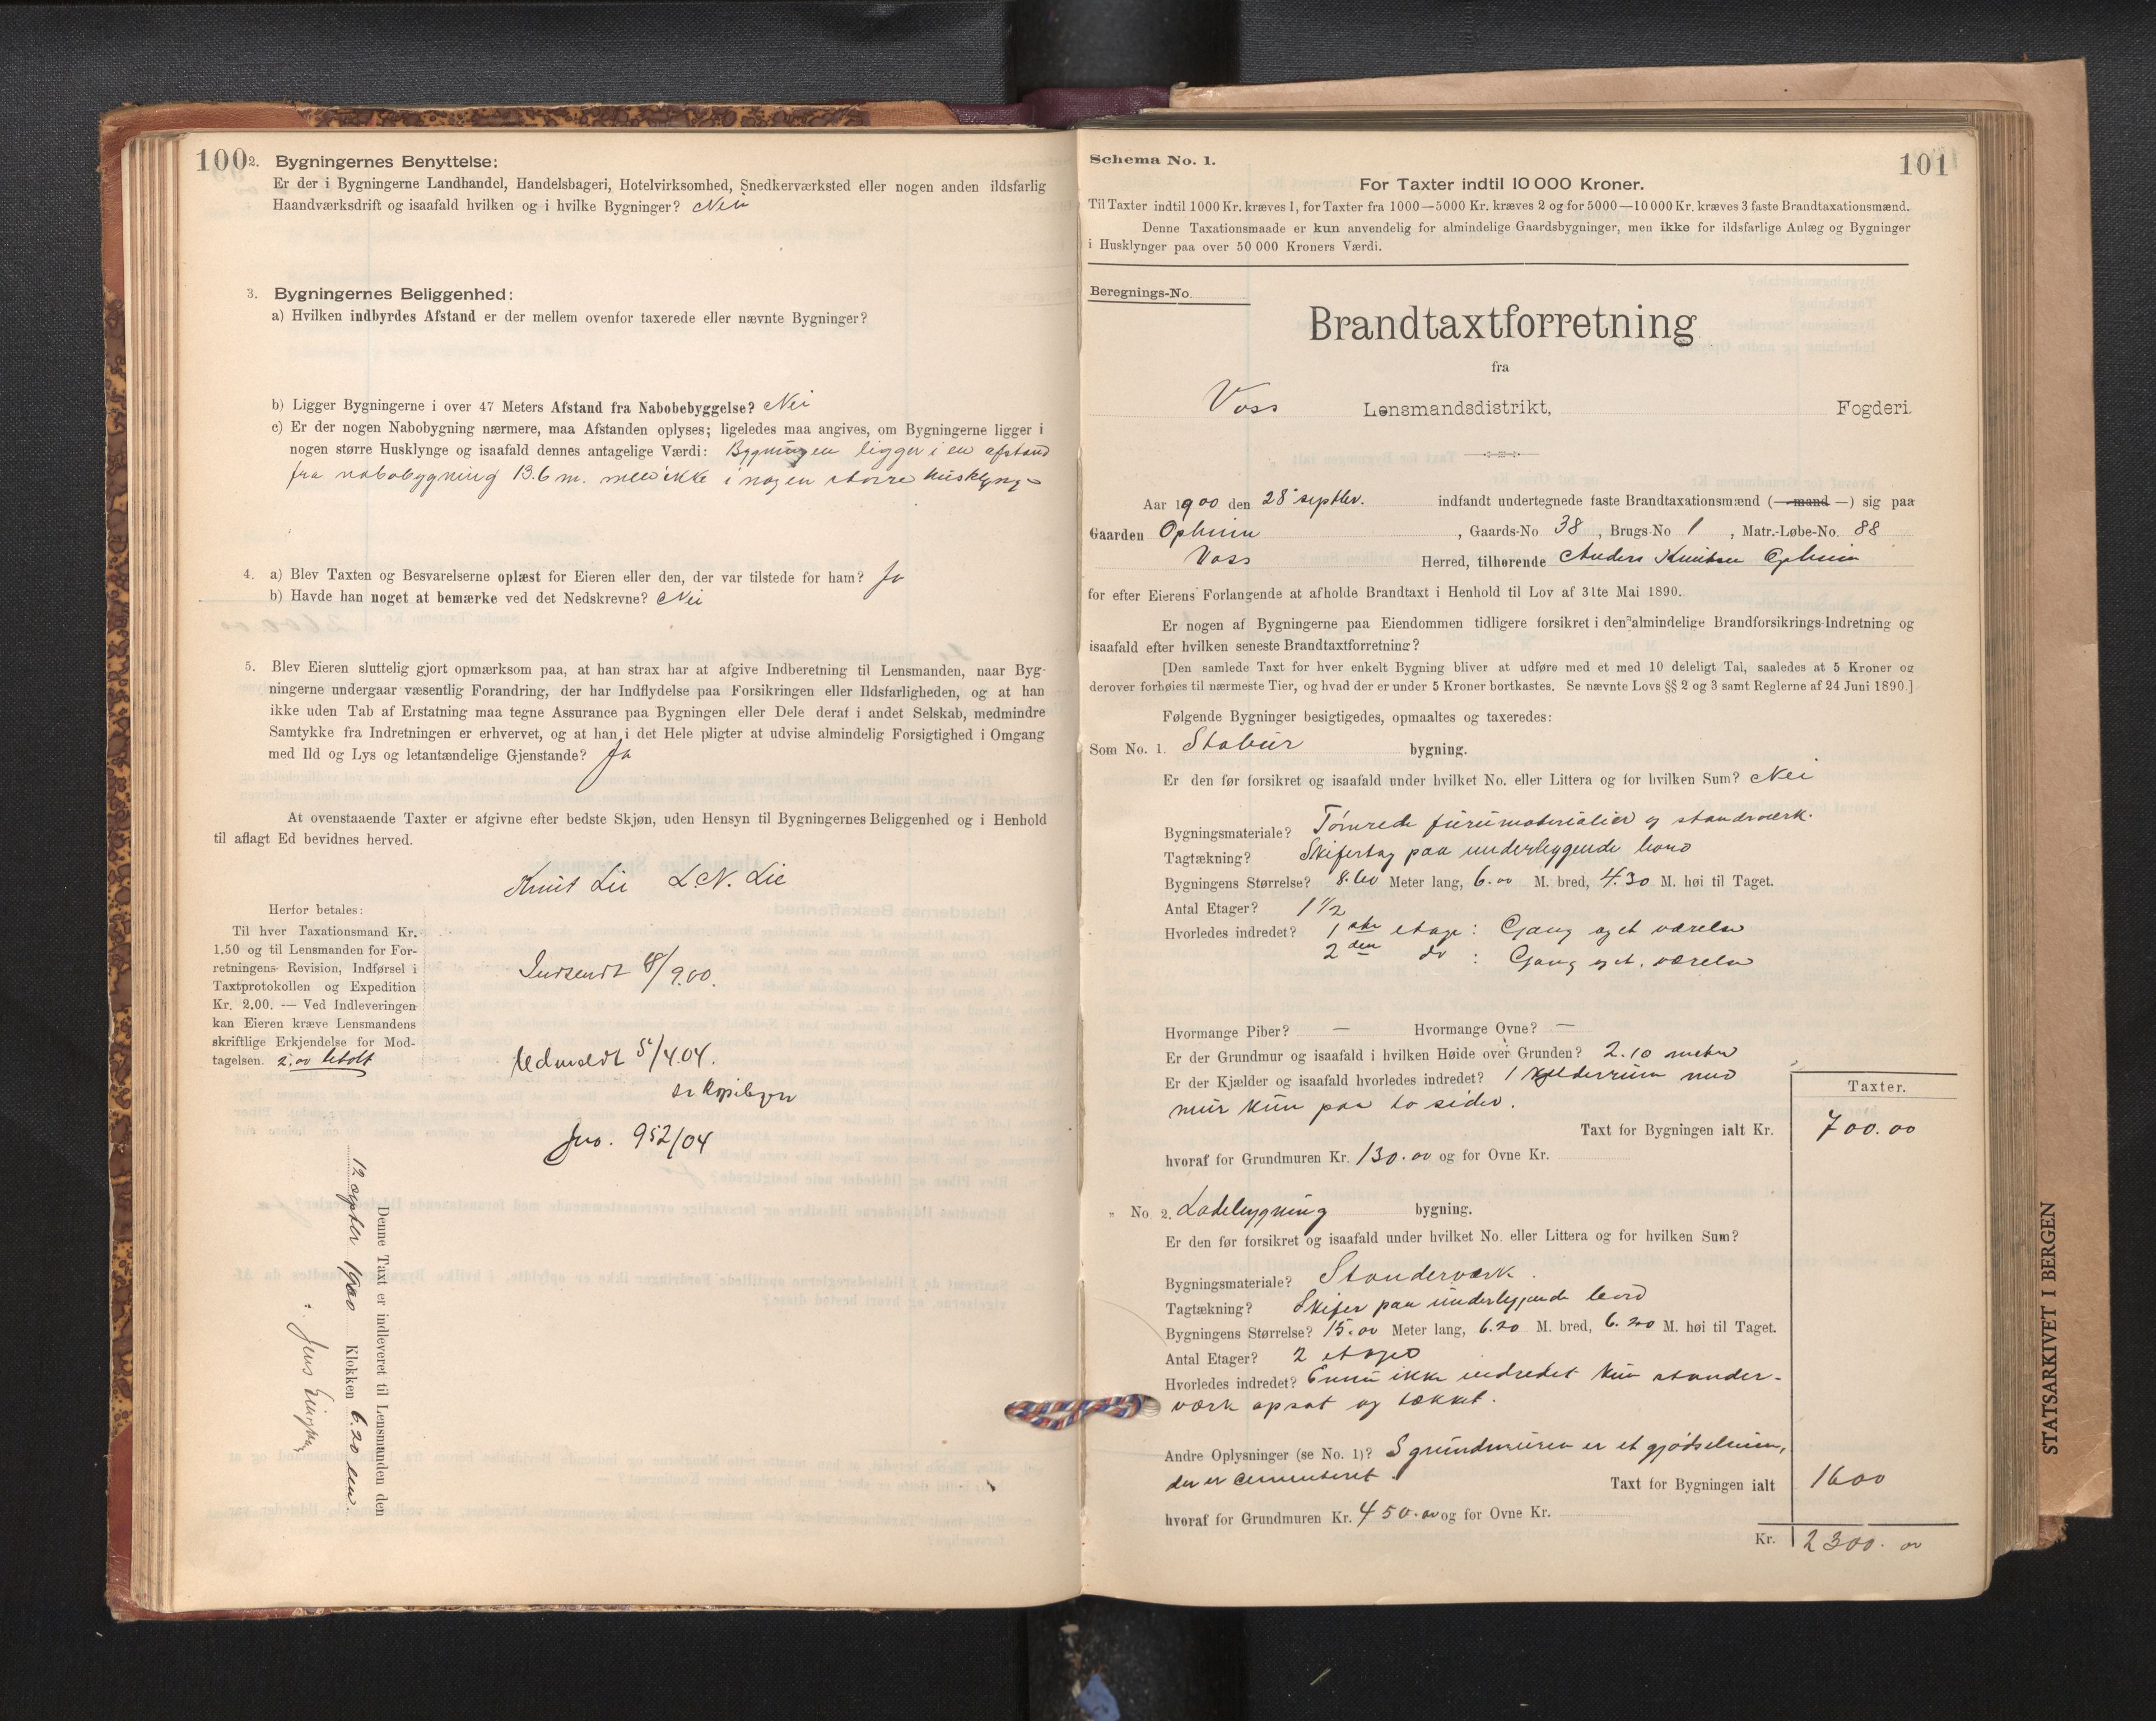 100
2. Bygningernes Benyttelse:
Er der i Bygningerne Landhandel, Handelsbageri, Hotelvirksomhed, Snedkerværksted eller nogen anden ildsfarlig
Haandværksdrift og isaafald hvilken og i hvilke Bygninger? Nei
3. Bygningernes Beliggenhed:
a) Hvilken indbyrdes Afstand er der mellem ovenfor taxerede eller nævnte Bygninger?
b) Ligger Bygningerne i over 47 Meters Afstand fra Nabobebyggelse? Nei
c) Er der nogen Nabobygning nærmere, maa Afstanden oplyses; ligeledes maa angives, om Bygningerne ligger i
nogen større Husklynge og isaafald dennes antagelige Værdi: Bygningen ligger i en afstand
fra nabobygning 13.6 m. men ikke i nogen større husklynge
4. a) Blev Taxten og Besvarelserne oplæst for Eieren eller den, der var tilstede for ham? Ja
b) Havde han noget at bemærke ved det Nedskrevne? Nei
5. Blev Eieren sluttelig gjort opmærksom paa, at han strax har at afgive Indberetning til Lensmanden, naar Byg-
ningerne undergaar væsentlig Forandring, der har Indflydelse paa Forsikringen eller Ildsfarligheden, og at han
ikke uden Tab af Erstatning maa tegne Assurance paa Bygningen eller Dele deraf i andet Selskab, medmindre
Samtykke fra Indretningen er erhvervet, og at han i det Hele pligter at udvise almindelig Forsigtighed i Omgang
med Ild og Lys og letantændelige Gjenstande? Ja
At ovenstaaende Taxter er afgivne efter bedste Skjøn, uden Hensyn til Bygningernes Beliggenhed og i Henhold
til aflagt Ed bevidnes herved.
Knut Lie L. N. Lie
Herfor betales:
Til hver Taxationsmand Kr.
1.50 og til Lensmanden for For-
retningens Revision, Indførsel i
Taxtprotokollen og Expedition
Kr. 2.00. — Ved Indleveringen
kan Eieren kræve Lensmandens
skriftlige Erkjendelse for Mod-
tagelsen. 2,00 betalt
Indsendt /900.
Udmeldt 5/4.04.
se Kopibogen
Jno. 952/04
Denne Taxt er indleveret til Lensmanden den
12 1900 Klokken 6.20 em.
Jens
Schema No. 1.
101
For Taxter indtil 10 000 Kroner.
Til Taxter indtil 1000 Kr. kræves 1, for Taxter fra 1000—5000 Kr. kræves 2 og for 5000—10 000 Kr. kræves 3 faste Brandtaxationsmænd.
Denne Taxationsmaade er kun anvendelig for almindelige Gaardsbygninger, men ikke for ildsfarlige Anlæg og Bygninger
i Husklynger paa over 50 000 Kroners Værdi.
Beregnings-No.
Brandtaxtforretning
fra
Voss Lensmandsdistrikt, Fogderi.
Aar 1900 den 28 septbr. indfandt undertegnede faste Brandtaxationsmænd (—mand—) sig paa
Gaarden Opheim, Gaards-No 38, Brugs-No 1, Matr.-Løbe-No. 88
Voss Herred, tilhørende Anders Knutsen Opheim
for efter Eierens Forlangende at afholde Brandtaxt i Henhold til Lov af 31te Mai 1890.
Er nogen af Bygningerne paa Eiendommen tidligere forsikret i den almindelige Brandforsikrings-Indretning og
isaafald efter hvilken seneste Brandtaxtforretning?
[Den samlede Taxt for hver enkelt Bygning bliver at udføre med et med 10 deleligt Tal, saaledes at 5 Kroner og
derover forhøies til nærmeste Tier, og hvad der er under 5 Kroner bortkastes. Se nævnte Lovs §§ 2 og 3 samt Reglerne af 24 Juni 1890.]
Følgende Bygninger besigtigedes, opmaaltes og taxeredes:
Som No. 1. Stabur bygning.
Er den før forsikret og isaafald under hvilket No. eller Littera og for hvilken Sum? Nei
Bygningsmateriale? Tømrede furumaterialier og standværk.
Tagtækning? Skifertag paa underliggende bord
Bygningens Størrelse? 8.60 Meter lang, 6.00 M. bred, 4.30 M. høi til Taget.
Antal Etager? 1 1/2
Hvorledes indredet? 1ste etage: Gang og et værelse
2den do : Gang og et værelse
Hvormange Piber? — Hvormange Ovne? —
Er der Grundmur og isaafald i hvilken Høide over Grunden? 2.10 meter
Er der Kjælder og isaafald hvorledes indredet? 1 kjelderrum med
mur kun paa to sider.
Taxter.
Taxt for Bygningen ialt Kr. 700.00
hvoraf for Grundmuren Kr. 130.00 og for Ovne Kr.
„ No. 2. Ladebygning bygning.
Er den før forsikret og isaafald under hvilket No. eller Littera og for hvilken Sum?
Bygningsmateriale? Standerværk.
Tagtækning? Skifer paa underliggende bord
Bygningens Størrelse? 15.00 Meter lang, 6.20 M. bred, 6.200 M. høi til Taget.
Antal Etager? 2 etager
Hvorledes indredet? Ennu ikke indredet kun stander-
værk opsat og tækket.
Andre Oplysninger (se No. 1)? I grundmuren er et gjødselrum,
der er cementeret.
Taxt for Bygningen ialt 1600
hvoraf for Grundmuren Kr. 450.00 og for Ovne Kr.
Kr. 2300.00
STATSARKIVET I BERGEN